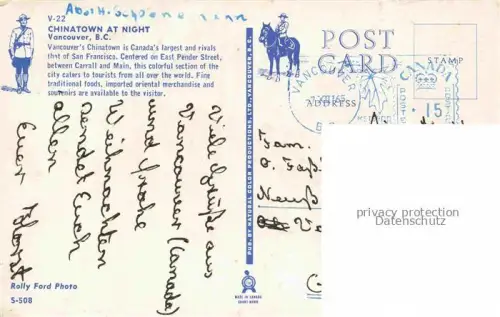 V-22
CHINATOWN AT NIGHT
Vancouver, B.C.
Vancouver's Chinatown is Canada's largest and rivals
that of San Francisco. Centered on East Pender Street,
between Carrall and Main, this colorful section of the
city caters to tourists from all over the world. Fine
traditional foods, imported oriental merchandise and
souvenirs are available to the visitor.
Viele Grüße aus
Vancouver (Canada)
und frohe
Weihnachten
sendet Euch
allen
Euer Horst
Rolly Ford Photo
S-508
PUB. BY NATURAL COLOR PRODUCTIONS, LTD., VANCOUVER, B.C.
MADE IN CANADA
POST CARD
ADDRESS
STAMP
VANCOUVER
15
Fam.
Neuß
privacy protection
Datenschutz